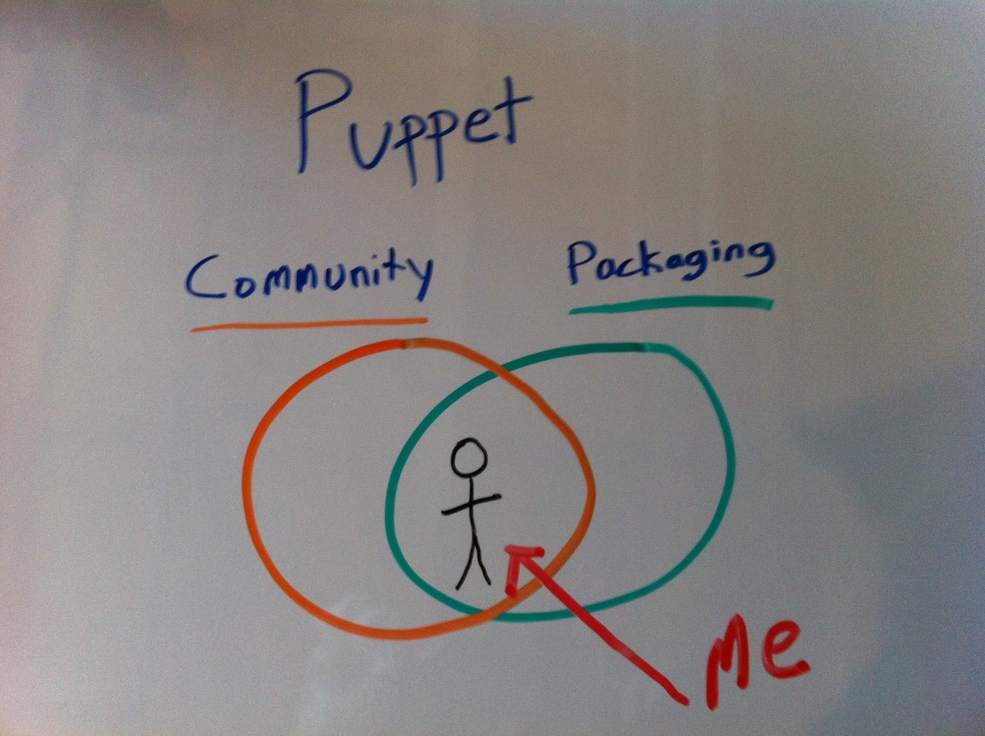 Puppet
Community
Packaging
Me